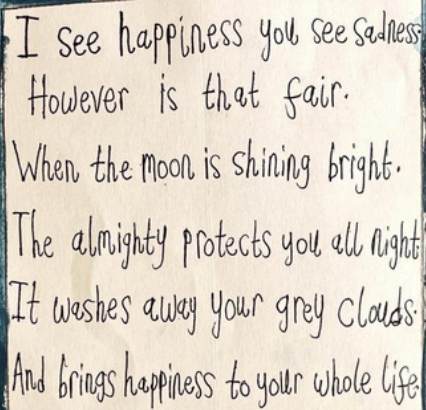 I see happiness you see sadness
However is that fair.
When the moon is shining bright.
The almighty protects you all night
It washes away your grey clouds.
And brings happiness to your whole life.